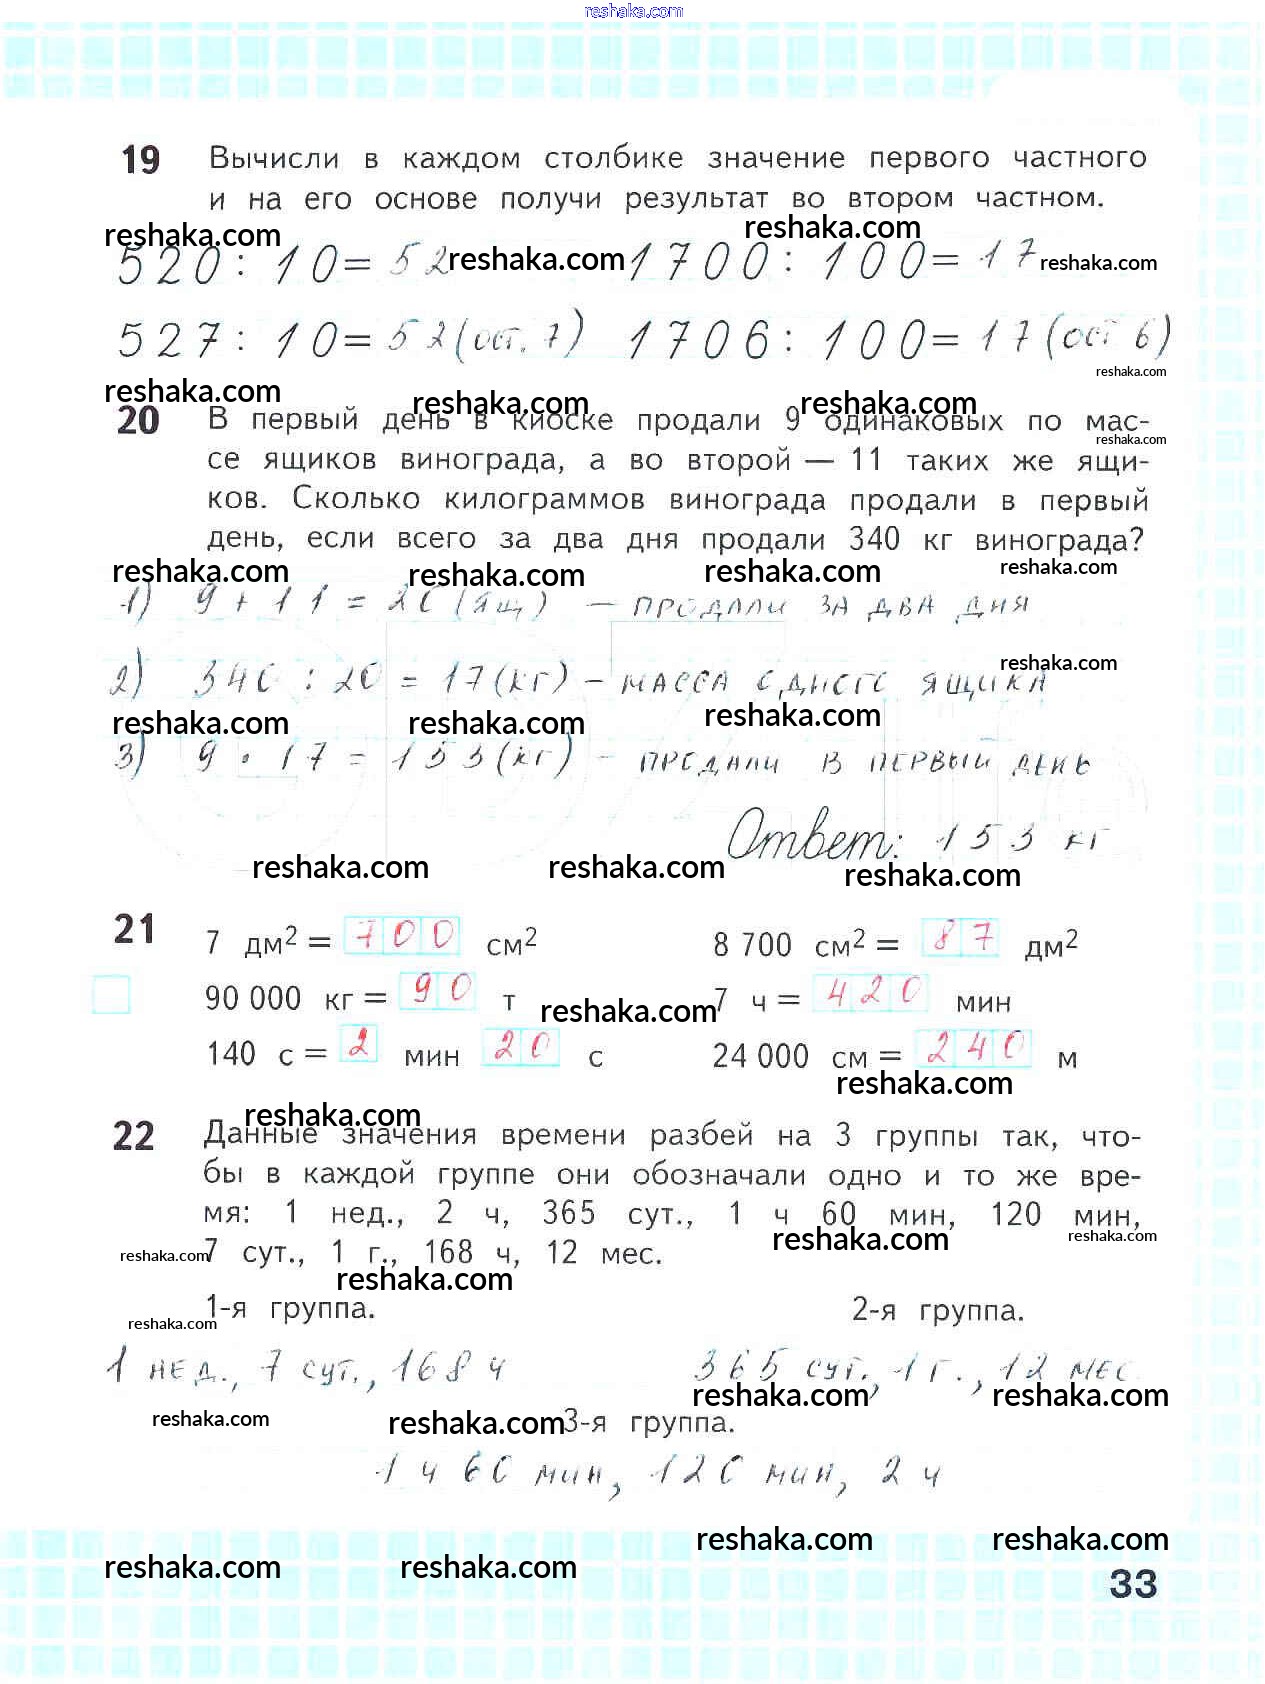 reshaka.com
19 Вычисли в каждом столбике значение первого частного
и на его основе получи результат во втором частном.
reshaka.com reshaka.com
520 : 10 = 52 reshaka.com 1700 : 100 = 17 reshaka.com
527 : 10 = 52 (ост. 7) 1706 : 100 = 17 (ост 6)
reshaka.com
reshaka.com reshaka.com reshaka.com
20 В первый день в киоске продали 9 одинаковых по мас-
reshaka.com
се ящиков винограда, а во второй — 11 таких же ящи-
ков. Сколько килограммов винограда продали в первый
день, если всего за два дня продали 340 кг винограда?
reshaka.com reshaka.com reshaka.com reshaka.com
1) 9 + 11 = 20 (ящ) – продали за два дня
reshaka.com
2) 340 : 20 = 17 (кг) – масса одного ящика
reshaka.com reshaka.com reshaka.com
3) 9 · 17 = 153 (кг) – продали в первый день
Ответ: 153 кг
reshaka.com reshaka.com reshaka.com
21 7 дм² = 700 см² 8 700 см² = 87 дм²
90 000 кг = 90 т reshaka.com 7 ч = 420 мин
140 с = 2 мин 20 с 24 000 см = 240 м
reshaka.com
reshaka.com
22 Данные значения времени разбей на 3 группы так, что-
бы в каждой группе они обозначали одно и то же вре-
мя: 1 нед., 2 ч, 365 сут., 1 ч 60 мин, 120 мин,
reshaka.com reshaka.com
reshaka.com 7 сут., 1 г., 168 ч, 12 мес.
reshaka.com
1-я группа. 2-я группа.
reshaka.com
1 нед., 7 сут., 168 ч 365 сут., 1 г., 12 мес
reshaka.com reshaka.com
reshaka.com reshaka.com 3-я группа.
1 ч 60 мин, 120 мин, 2 ч
reshaka.com reshaka.com
reshaka.com reshaka.com
33